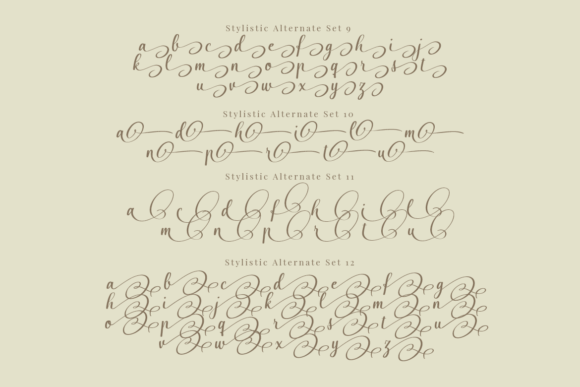 Stylistic Alternate Set 9
a b c d e f g h i j
k l m n o p q r s t
u v w x y z
Stylistic Alternate Set 10
a d h i l m
n p r t u
Stylistic Alternate Set 11
a c d f h i l
m n p r t u
Stylistic Alternate Set 12
a b c d e f g
h i j k l m n
o p q r s t u
v w x y z